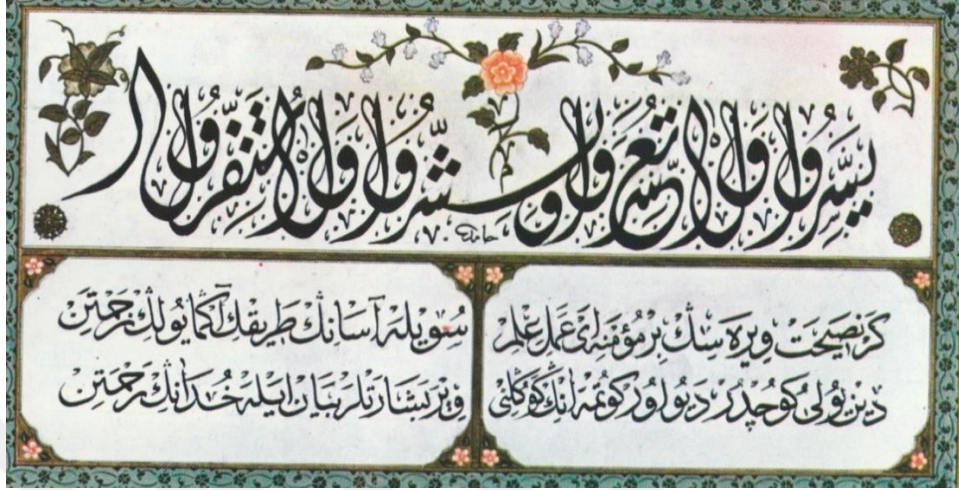 يَسِّرُوا وَلَا تُعَسِّرُوا وَبَشِّرُوا وَلَا تُنَفِّرُوا
حامد
كر نصيحت ويره سك بر مؤمنه اى علم
دين يولى كوجدر ديو اوركوتمه انك كوكلنى
سويله آسانك طريقك آكما يولك زحمتن
وير بشارتلر بيان ايله خدانك رحمتن